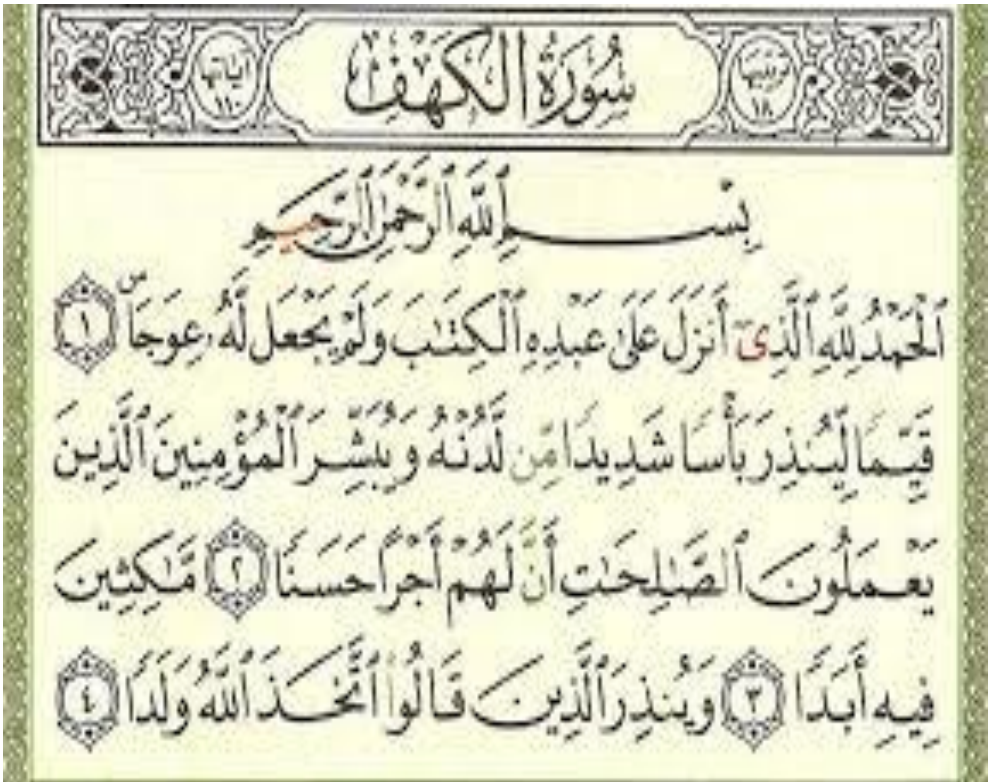 ترتيبها ١٨
سُورَةُ الكَهْفِ
آياتها ١١٠
بِسْمِ ٱللَّهِ ٱلرَّحْمَٰنِ ٱلرَّحِيمِ
ٱلْحَمْدُ لِلَّهِ ٱلَّذِىٓ أَنزَلَ عَلَىٰ عَبْدِهِ ٱلْكِتَٰبَ وَلَمْ يَجْعَل لَّهُۥ عِوَجَاۜ ١
قَيِّمًا لِّيُنذِرَ بَأْسًا شَدِيدًا مِّن لَّدُنْهُ وَيُبَشِّرَ ٱلْمُؤْمِنِينَ ٱلَّذِينَ
يَعْمَلُونَ ٱلصَّٰلِحَٰتِ أَنَّ لَهُمْ أَجْرًا حَسَنًا ٢ مَّٰكِثِينَ
فِيهِ أَبَدًا ٣ وَيُنذِرَ ٱلَّذِينَ قَالُوا۟ ٱتَّخَذَ ٱللَّهُ وَلَدًا ٤